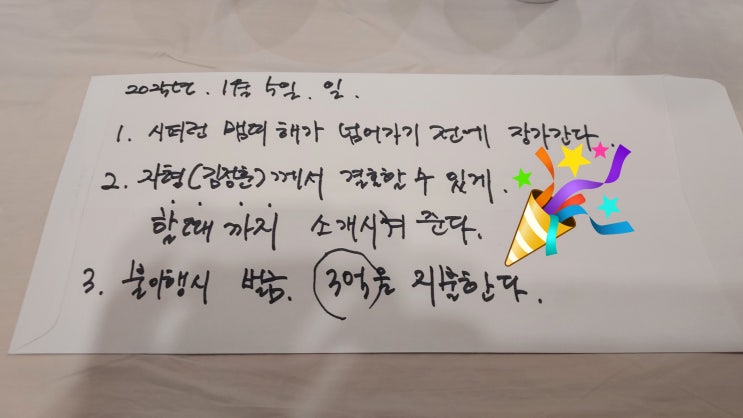 2025년. 1월 5일. 일.
1. 시퍼런 뱀띠 해가 넘어가기 전에 장가간다.
2. 자형(김정훈)께서 결혼할 수 있게
할때 까지 소개시켜 준다.
3. 불이행시 벌금. 3억을 지출한다.